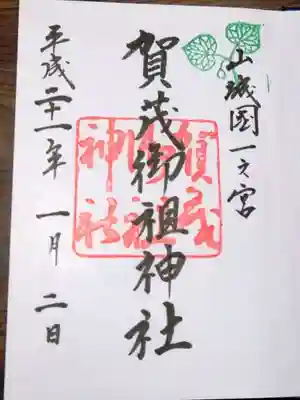 山城國一之宮
賀茂御祖神社
平成二十一年一月二日
賀茂
御祖
神社